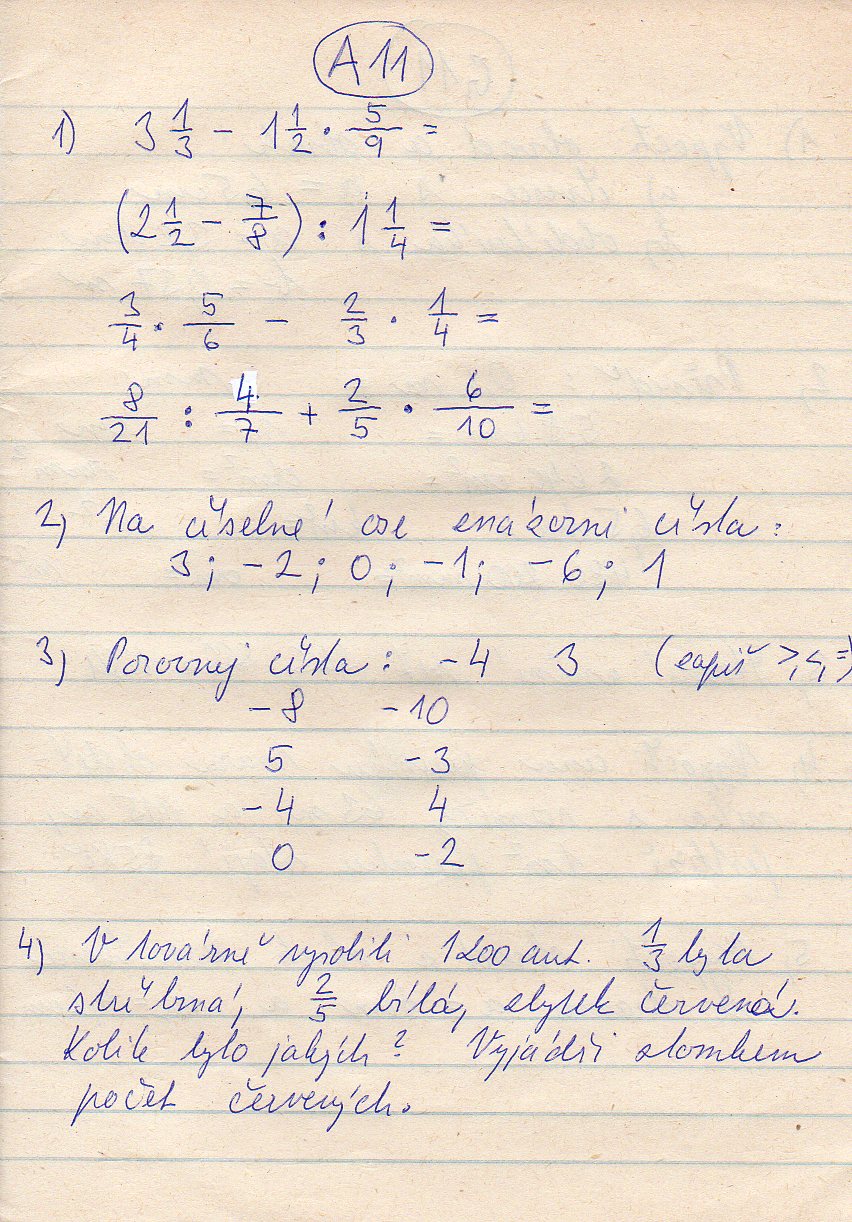 A11
1) 3 1/3 - 1 1/2 · 5/9 =
(2 1/2 - 7/8) : 1 1/4 =
3/4 · 5/6 - 2/3 · 1/4 =
8/21 : 4/7 + 2/5 · 6/10 =
2) Na číselné ose znázorni čísla:
3; -2; 0; -1; -6; 1
3) Porovnej čísla: -4 3 (zapiš >, <, =)
-8 -10
5 -3
-4 4
0 -2
4) V továrně vyrobili 1200 aut. 1/3 byla
stříbrná, 2/5 bílá, zbytek červená.
Kolik bylo jakých? Vyjádři zlomkem
počet červených.